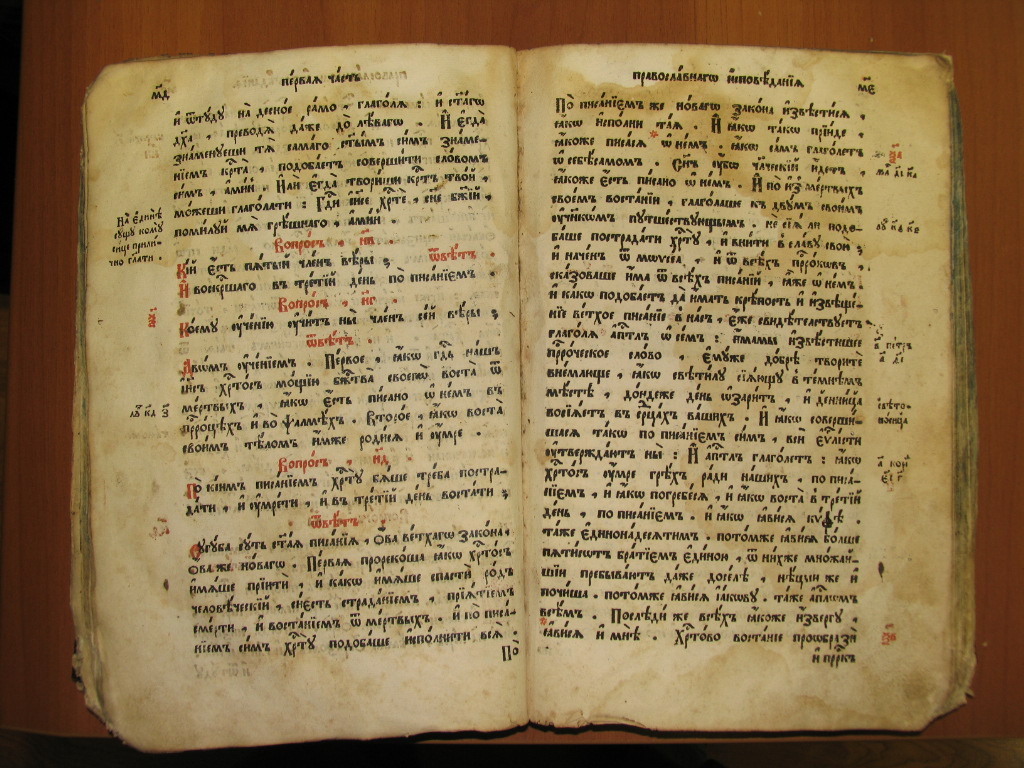 м҃д
пе́рваѧ ча́сть
и҆ ѿту́дꙋ на̀ десно́е ра́мо , глаго́лѧ : и҆ ст҃а́гѡ
дх҃а , преводѧ̀ да́же до̀ лѣ́вагѡ . И҆ є҆гда̀
зна́менꙋеши тѧ̀ самаго̀ ст҃ы́мъ си́мъ зна́ме-
нїемъ крⷭ҇та̀ , подоба́етъ соверши́ти сло́вомъ
си́мъ , а҆ми́нь . И҆лѝ є҆гда̀ твори́ши крⷭ҇тъ тво́й ,
мо́жеши глаго́лати : Гдⷭ҇и і҆и҃се хрⷭ҇тѐ , сн҃е бж҃їй ,
поми́лꙋй мѧ̀ грѣ́шнаго , а҆ми́нь .
Вопро́съ , н҃в .
Кі́й є҆сть пѧ́тый чле́нъ вѣ́ры ; ѿвѣ́тъ .
И҆ воскр҃шаго въ тре́тїй де́нь по писа́нїемъ .
Вопро́съ , н҃г .
Коемꙋ̀ ѹ҆че́нїю ѹ҆чи́тъ ны̀ чле́нъ се́й вѣ́ры ;
ѿвѣ́тъ .
Двѡ́мъ ѹ҆че́нїемъ . Пе́рвое , ꙗ҆́кѡ гдⷭ҇ь на́шъ
і҆и҃съ хрⷭ҇то́съ мо́щїю бж҃тва̀ своегѡ̀ воста̀ ѿ
ме́ртвыхъ , ꙗ҆́кѡ є҆́сть пи́сано ѡ҆ не́мъ въ
прⷪ҇ро́цѣхъ и҆ во ѱалмѣ́хъ . Второ́е , ꙗ҆́кѡ воста̀
свои́мъ тѣ́ломъ и҆́мже роди́сѧ и҆ ѹ҆́мре .
Вопро́съ , н҃д .
По ки́имъ писа́нїемъ хрⷭ҇тꙋ̀ бѧ́ше тре́ба постра-
да́ти , и҆ ѹ҆мре́ти , и҆ въ тре́тїй де́нь воста́ти ;
ѿвѣ́тъ .
Сꙋгꙋ́ба сꙋ́ть ст҃а́ѧ писа́нїѧ , Ѻ҆́ва ве́тхагѡ зако́на ,
ѻ҆́ва же но́вагѡ . Пе́рваѧ прореко́ша ꙗ҆́кѡ хрⷭ҇то́съ
и҆мѧ́ше прїитѝ , и҆ ка́кѡ и҆мѧ́ше спастѝ ро́дъ
человѣ́ческїй , сїе́сть страда́нїемъ , прїѧ́тїемъ
сме́рти , и҆ воста́нїемъ ѿ ме́ртвыхъ . И҆ по писа́-
нїемъ си́мъ хрⷭ҇тꙋ̀ подоба́ше и҆спо́лнити всѧ̀ .
По̀
На̀ є҆ди́нѣ
сꙋ́щꙋ комꙋ̀
си́це прили́-
чно гл҃ати .
лꙋ́ к҃а к҃д з҃
м҃є
правосла́внагѡ и҆сповѣ́данїѧ
По̀ писа́нїемъ же но́вагѡ зако́на и҆звѣсти́сѧ ,
ꙗ҆́кѡ и҆спо́лни та́ѧ . И҆ ꙗ҆́кѡ та́кѡ прїи́де ,
ꙗ҆́коже писа́сѧ ѡ҆ не́мъ . ꙗ҆́кѡ са́мъ глаго́летъ
ѡ҆ себѣ̀ самомъ . Сн҃ъ ѹ҆́бѡ чл҃ческїй и҆де́тъ ,
ꙗ҆́коже є҆́сть пи́сано ѡ҆ не́мъ . И҆ по и҆з̾ ме́ртвыхъ
свое́мъ воста́нїи , глаго́лаше къ двꙋ́мъ свои́мъ
ѹ҆чн҃кѡмъ пꙋтше́ствꙋющымъ . не сїѧ́ ли подо-
ба́ше пострада́ти хрⷭ҇тꙋ̀ , и҆ вни́ти въ сла́вꙋ свою̀ ;
и҆ наче́нъ ѿ мѡѵсе́а , и҆ ѿ всѣ́хъ прⷪ҇рѡ́къ , .
сказова́ше и҆́ма ѿ всѣ́хъ писа́нїй , ꙗ҆̀же ѡ҆ не́мъ .
и҆ ка́кѡ подоба́етъ да и҆мать крѣ́пость и҆ и҆звѣще́-
нїе ве́тхое писа́нїе в на́съ , є҆́же свидѣ́тельствꙋетъ
глаго́лѧ а҆пⷭ҇лъ ѡ҆ се́мъ : и҆́мамы и҆звѣ́стншее
прⷪ҇ро́ческое сло́во , є҆мꙋ́же до́брѣ творитѐ
внима́юще , ꙗ҆́кѡ свѣти́лꙋ сїѧ́ющꙋ в те́мнѣмъ
мѣ́стѣ , до́ндеже де́нь ѡ҆зари́тъ , и҆ денни́ца
возсїѧ́етъ въ срⷣца́хъ ва́шихъ . И҆ ꙗ҆́кѡ соверши́-
шасѧ та́кѡ по писа́нїемъ си́мъ , всѝ є҆ѵⷢ҇лі́сти
ѹ҆твержда́ютъ ны̀ : И҆ а҆пⷭ҇лъ глаго́летъ : ꙗ҆́кѡ
хрⷭ҇то́съ ѹ҆́мре грѣ́хъ ра́ди на́шихъ , по писа́-
нїемъ , и҆ ꙗ҆́кѡ погребе́сѧ , и҆ ꙗ҆́кѡ воста̀ в тре́тїй
де́нь , по писа́нїемъ . и҆ ꙗ҆́кѡ ꙗ҆ви́сѧ ки́фѣ .
та́же є҆динонадесѧти́мъ . пото́мже ꙗ҆ви́сѧ бо́лше
пѧти́сѡтъ бра́тїемъ є҆ди́ною , ѿ ни́хже мно́жай-
шїи пребыва́ютъ да́же досе́лѣ , нѣ́цыи же и҆
почи́ша . пото́мже ꙗ҆ви́сѧ і҆а́кѡвꙋ . та́же а҆пⷭ҇лѡмъ
всѣ́мъ . Послѣди́ же всѣ́хъ ꙗ҆́коже и҆́звергꙋ ,
ꙗ҆ви́сѧ и҆ мнѣ̀ . Хрⷭ҇то́во воста́нїе проѡбразѝ
и҆ прⷪ҇ркъ
лꙋ́ к҃д к҃є
в҃ пе́тръ
а҃ ѳ҃і
свѣто-
но́сица
а҃ кор
є҃і г҃